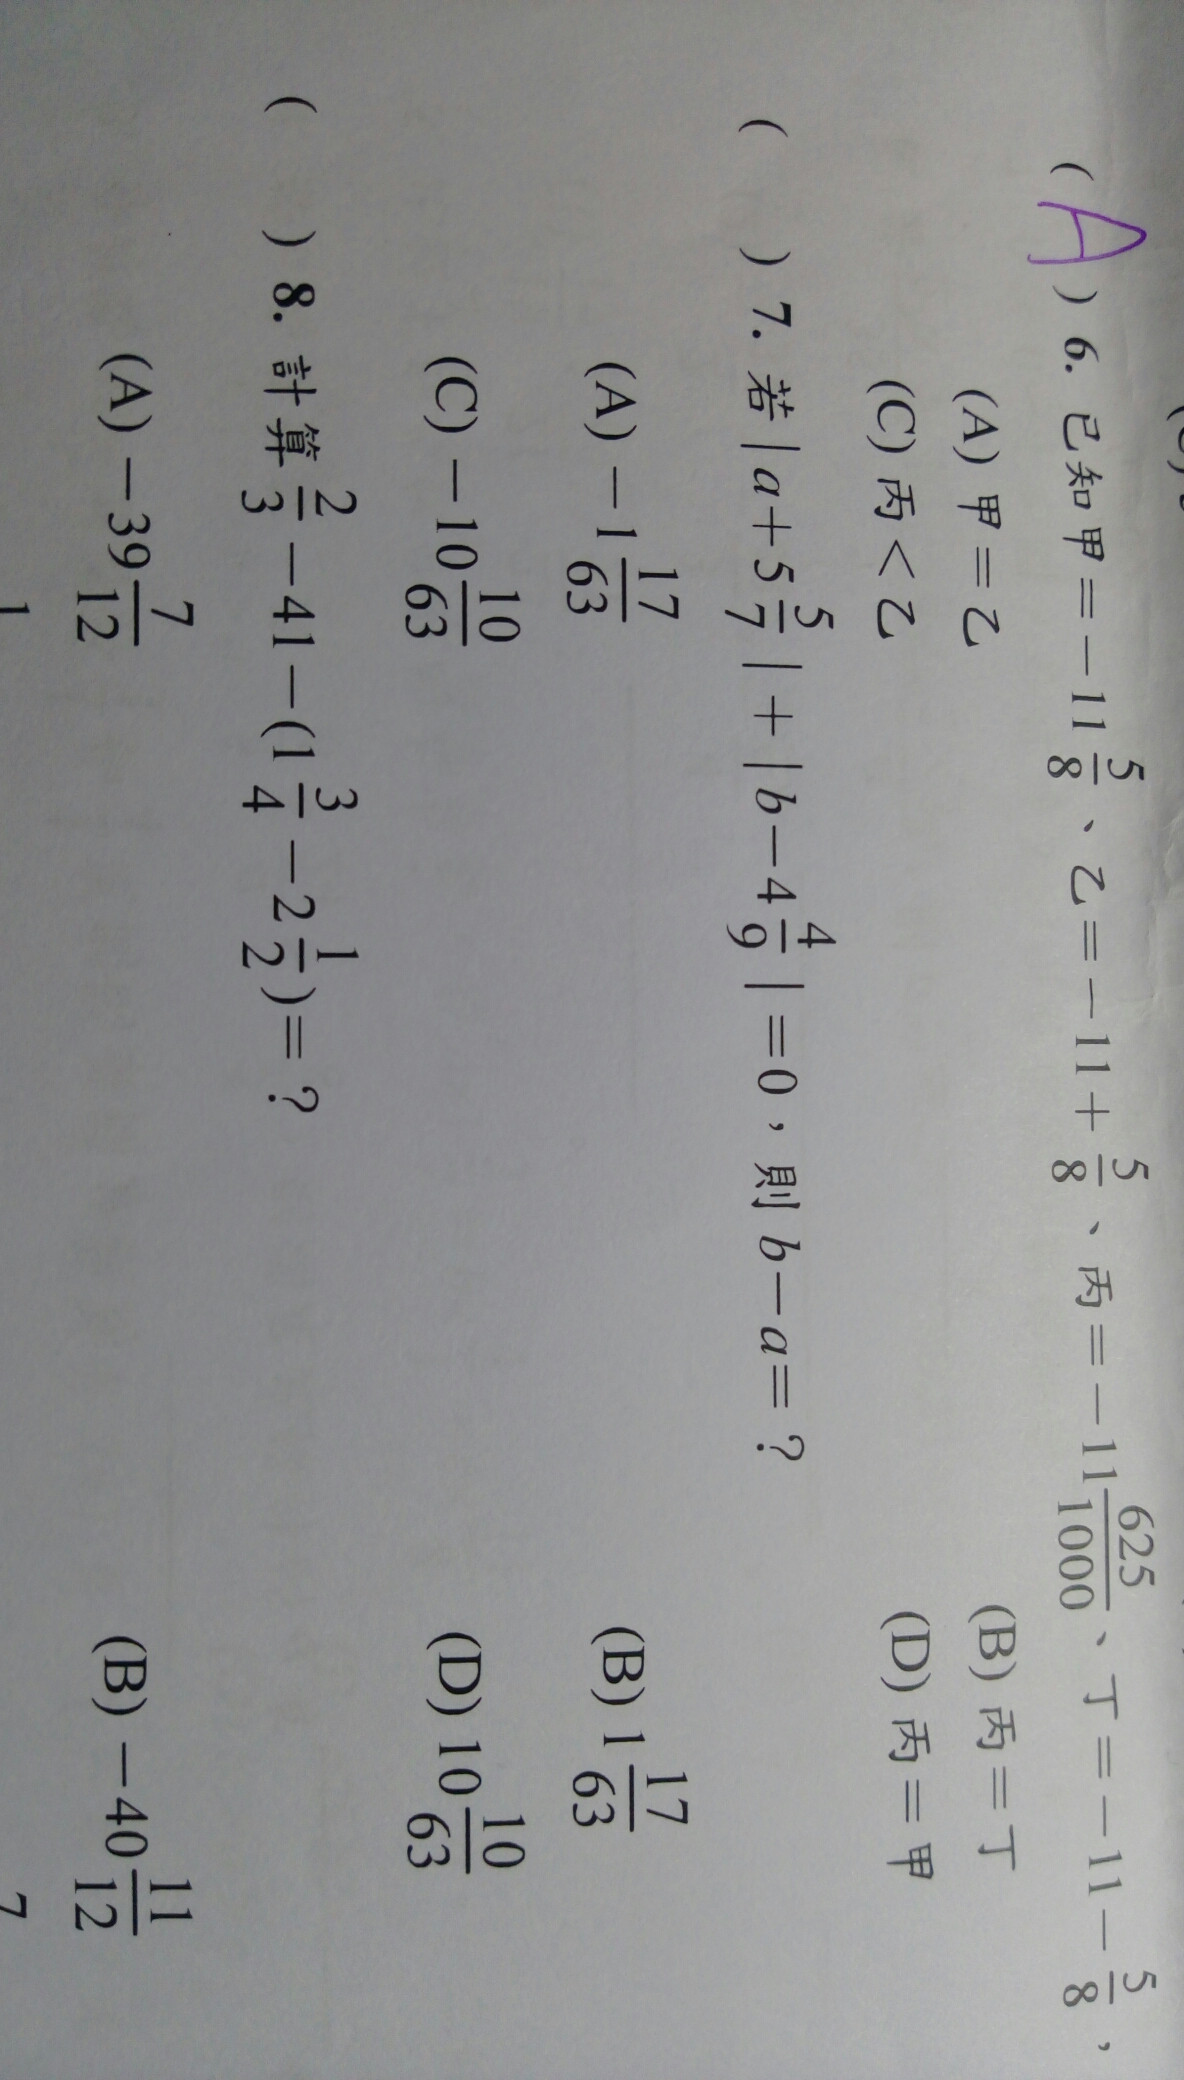 (A) 6. 已知甲=－11 5/8、乙=－11+5/8、丙=－11 625/1000、丁=－11－5/8，
(A) 甲=乙 (B) 丙=丁
(C) 丙<乙 (D) 丙=甲
( ) 7. 若|a+5 5/7|+|b－4 4/9|=0，則b－a=？
(A) －1 17/63 (B) 1 17/63
(C) －10 10/63 (D) 10 10/63
( ) 8. 計算2/3－41－(1 3/4－2 1/2)=？
(A) －39 7/12 (B) －40 11/12
1 7